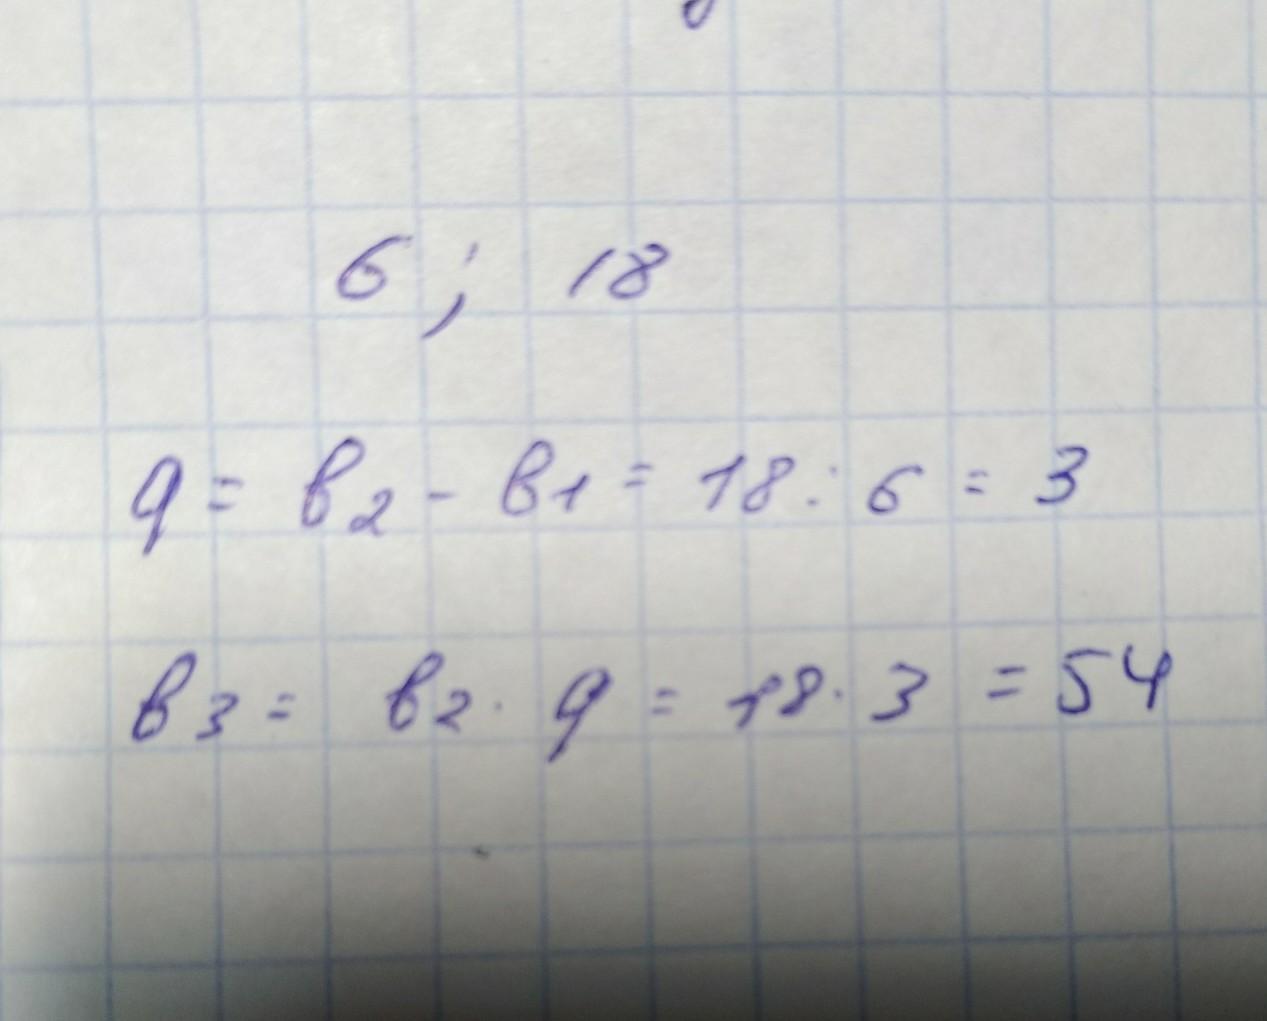 6 ; 18
q = b₂ - b₁ = 18 : 6 = 3
b₃ = b₂ · q = 18 · 3 = 54